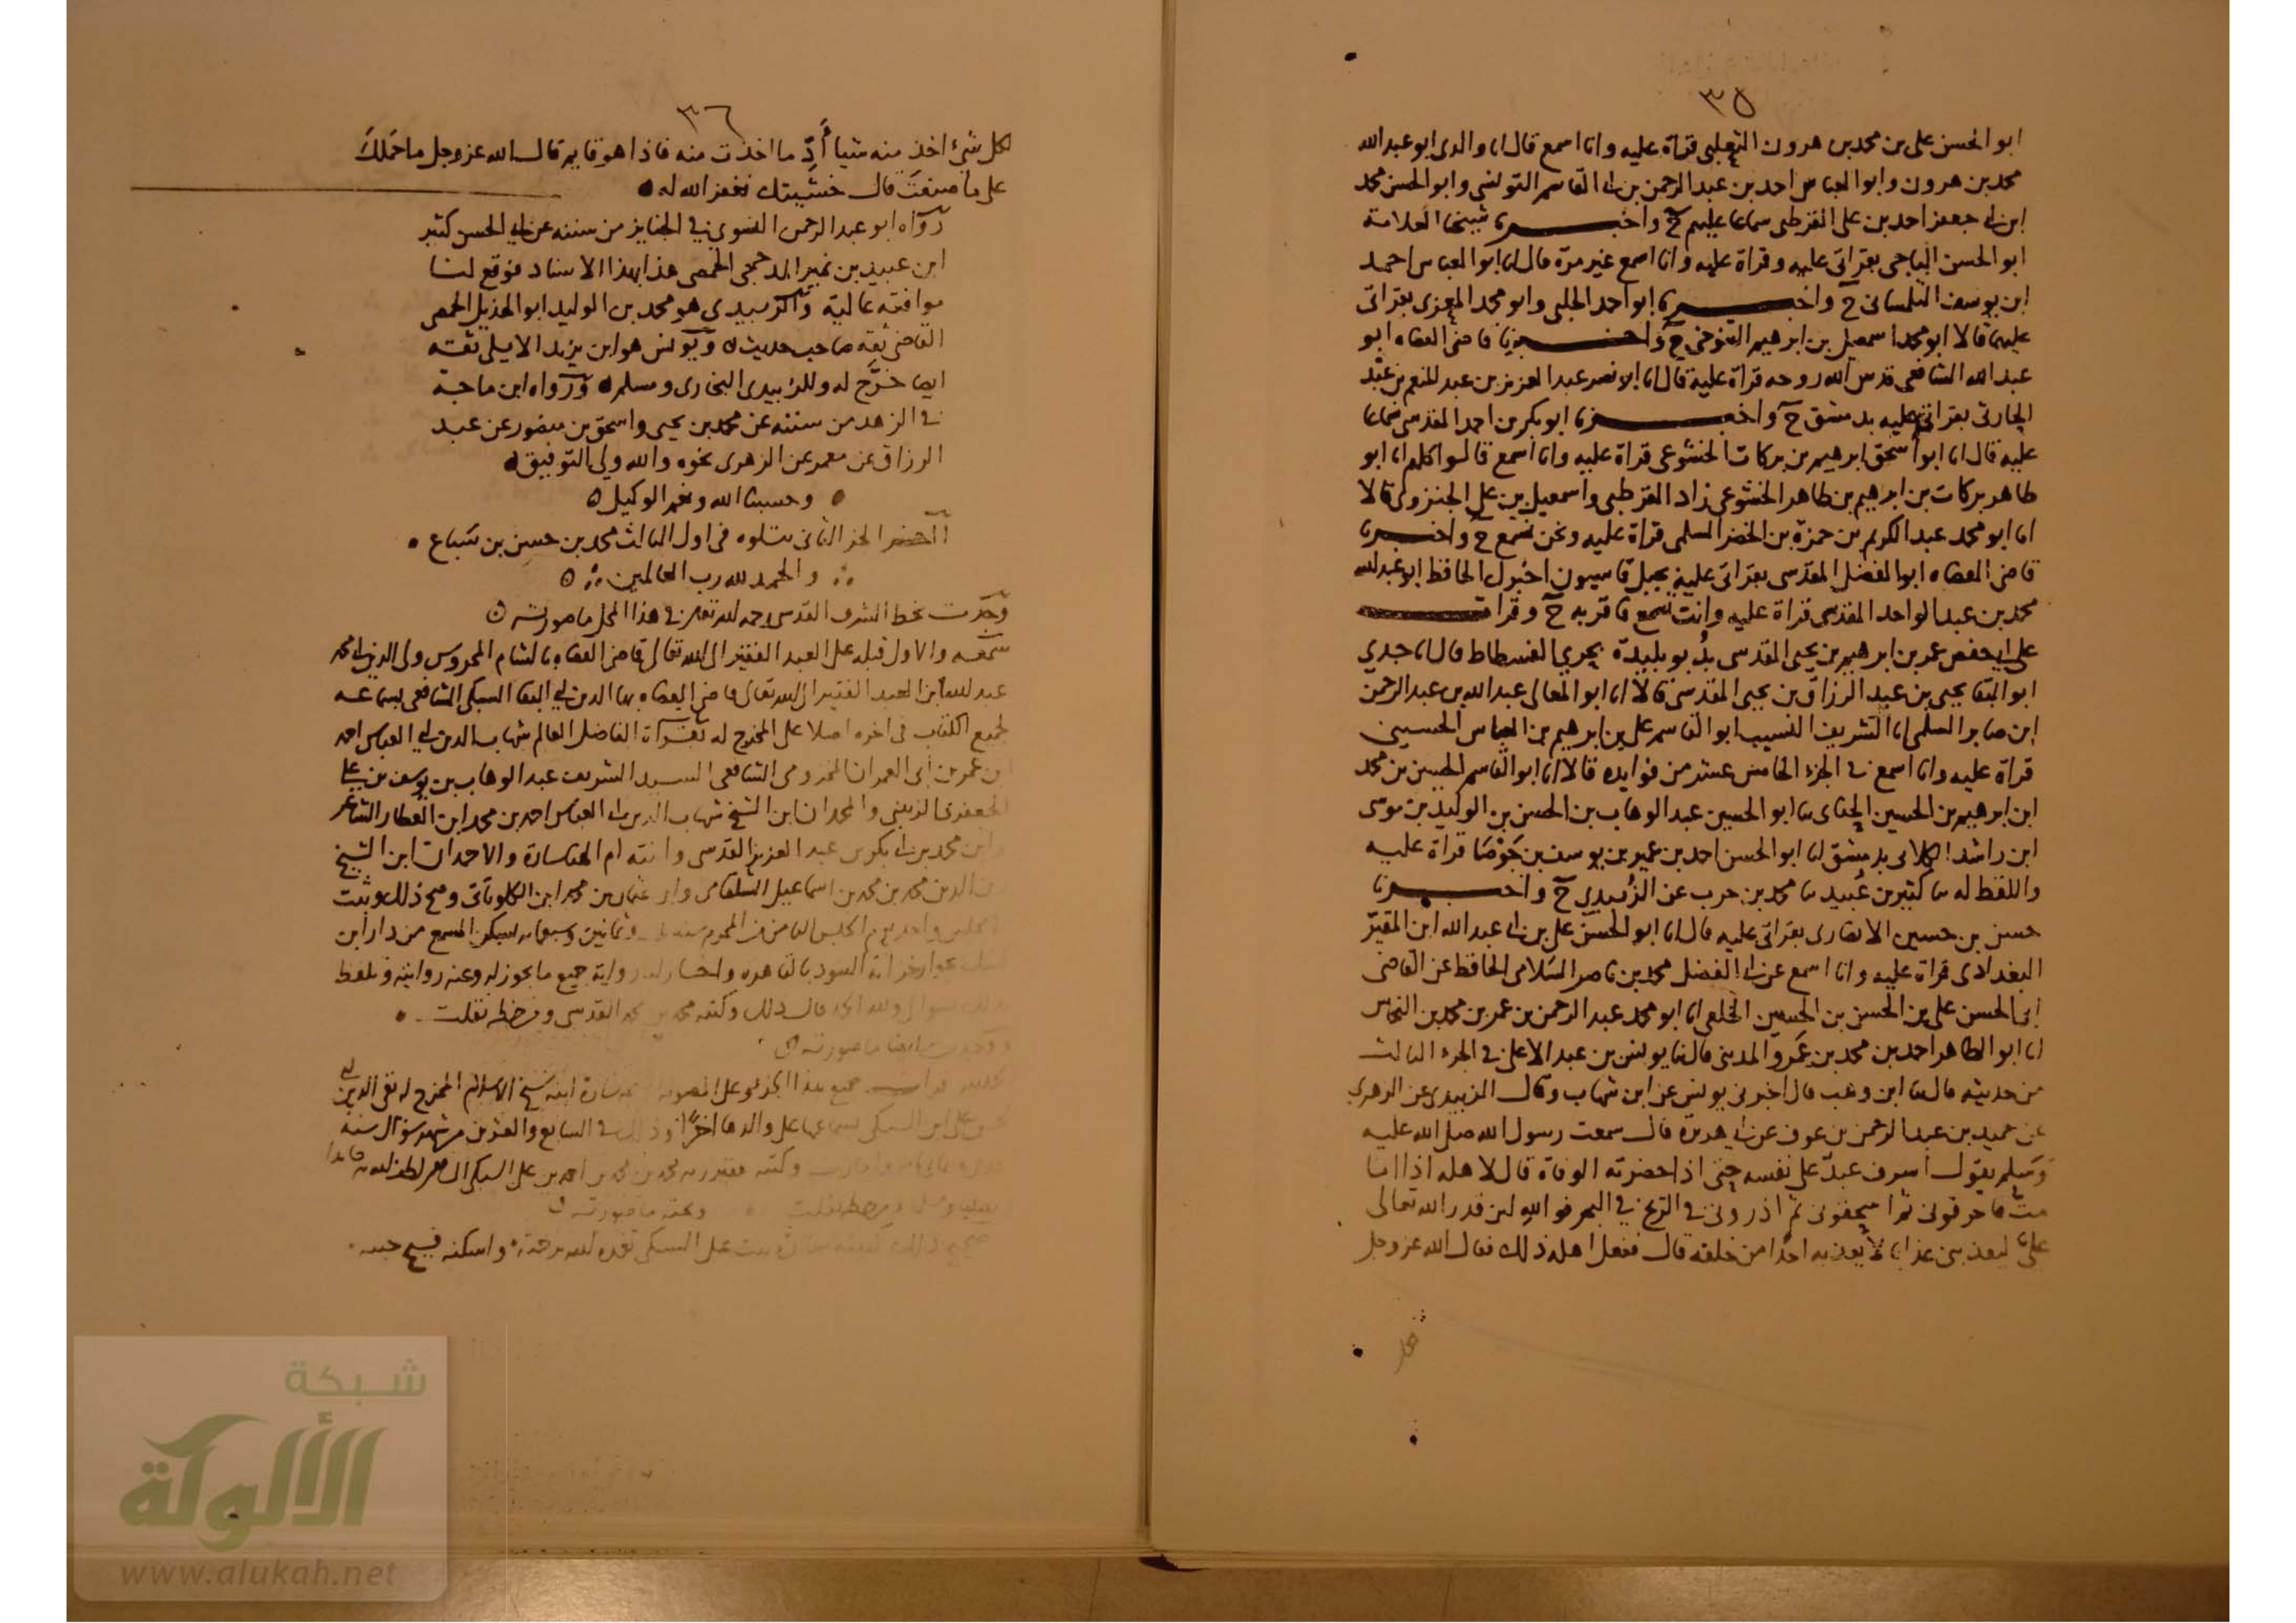 ٣٥
ابو الحسن على بن محمد بن هرون الثعلبى قراة عليه وانا اسمع قال انا والدى ابو عبد الله
محمد بن هرون وابو العباس احمد بن عبد الرحمن بن ابى القاسم التونسى وابو الحسن محمد
ابن ابى جعفر احمد بن على القرطبى سماعا عليهم ح واخبرنا شيخنا العلامة
ابو الحسن الباجى بقراتى عليه وقراة عليه وانا اسمع غير مرة قال انا ابو العباس احمد
ابن يوسف التلمسانى ح واخبرنا ابو احمد الحلبى وابو محمد المعزى بقراتى
عليهما قالا ابو محمد اسمعيل بن ابرهيم التنوخى ح واخبرنا قاضى القضاه ابو
عبد الله الشافعى قدس الله روحه قراة عليه قال انا ابو نصر عبد العزيز بن عبد المنعم بن عبد
الحارثى بقراتى عليه بدمشق ح واخبرنا ابو بكر بن احمد المقدسى سماعا
عليه قال انا ابو اسحق ابرهيم بن بركات الخشوعى قراة عليه وانا اسمع قالوا كلهم انا ابو
طاهر بركات بن ابرهيم بن طاهر الخشوعى زاد القرطبى واسمعيل بن على الجنزوى قالا
انا ابو محمد عبد الكريم بن حمزة بن الخضر السلمى قراة عليه ونحن نسمع ح واخبرنا
قاضى القضاه ابو الفضل المقدسى بقراتى عليه بجبل قاسيون اخبرك الحافظ ابو عبد الله
محمد بن عبد الواحد المقدسى قراة عليه وانت تسمع فاقر به ح وقرات
على ابى حفص عمر بن ابرهيم بن يحيى المقدسى بلد بو بليدة بحرى الفسطاط قال انا جدي
ابو البقا يحيى بن عبد الرزاق بن يحيى المقدسى قالا انا ابو المعالى عبد الله بن عبد الرحمن
ابن صابر السلمى انا الشريف النسيب ابو القاسم على بن ابرهيم بن العباس الحسينى
قراة عليه وانا اسمع فى الجزء الخامس عشر من فوايده قالا انا ابو القاسم الحسين بن محمد
ابن ابرهيم بن الحسين الحنائى نا ابو الحسين عبد الوهاب بن الحسن بن الوليد بن موسى
ابن راشد الكلابى بدمشق انا ابو الحسن احمد بن عمير بن يوسف بن جَوْصَا قراة عليه
واللفظ له نا كثير بن عُبيد نا محمد بن حرب عن الزُبيدي ح واخبرنا
حسن بن حسين الانصارى بقراتى عليه قال انا ابو الحسن على بن ابى عبد الله ابن المقيّر
البغدادى قراة عليه وانا اسمع عن ابى الفضل محمد بن ناصر السَلامى الحافظ عن القاضى
ابى الحسن على بن الحسن بن الحسين الخلعى انا ابو محمد عبد الرحمن بن عمر بن محمد بن النحاس
انا ابو الطاهر احمد بن محمد بن عَمرو المدينى قال نا يونس بن عبد الاعلى فى الجزء الثالث
من حديثه قال نا ابن وهب قال اخبرنى يونس عن ابن شهاب وقال الزبيدى عن الزهرى
عن حميد بن عبد الرحمن بن عوف عن ابى هريرة قال سمعت رسول الله صلى الله عليه
وسلم يقول اسرف عبدٌ على نفسه حتى اذا حضرته الوفاة قال لاهله اذا انا
متّ فاحرقونى ثم اسحقونى ثم اذرونى فى الريح فى البحر فوالله لئن قدر الله تعالى
علىّ ليعذبنى عذابا لا يعذبه احدًا من خلقه قال ففعل اهله ذلك فقال الله عز وجل
٣٦
لكل شىء اخذ منه شيا أَدِّ ما اخذت منه فاذا هو قايم قال الله عز وجل ما حَمَلكَ
على ما صنعتَ قال خشيتك فغفر الله له
رَوَاه ابو عبد الرحمن النسوى فى الجنايز من سننه عن ابى الحسن كثير
ابن عبيد بن نمير المذحجى الحمصى هذا بهذا الاسناد فوقع لنا
موافقه عالية والزبيدى هو محمد بن الوليد ابو الهذيل الحمصى
القاضى ثقة صاحب حديث ويونس هو ابن يزيد الايلى ثقة
ايضا خرَّج له وللزبيدى البخارى ومسلم ورواه ابن ماجة
فى الزهد من سننه عن محمد بن يحيى واسحق بن منصور عن عبد
الرزاق عن معمر عن الزهرى نحوه والله ولى التوفيق
وحسبنا الله ونعم الوكيل
آخر الجز الثانى يتلوه فى اول الثالث محمد بن حسين بن سَباع
والحمد لله رب العالمين
وجدت بخط الشرف القدسى رحمه الله تعالى فى هذا المحل ما صورته
سمعه والاول قبله على العبد الفقير الى الله تعالى قاضى القضاه بالشام المحروس ولى الدين ابى محمد
عبد الله ابن العبد الفقير الى الله تعالى قاضى القضاه بها الدين ابى البقا السبكى الشافعى بسماعه
لجميع الكتاب فى اخره اصلا على المخرج له بقراة الفاضل العالم شهاب الدين ابى العباس احمد
ابن عمر بن ابى العمران المخزومى الشافعى السيد الشريف عبد الوهاب بن يوسف بن على
الجعفرى الزينبى والمحمدان ابن الشيخ شهاب الدين ابى العباس احمد بن محمد ابن العطار الشاعر
وابن محمد بن ابى بكر بن عبد العزيز القدسى وابنته ام الحنا سارة والاحمدان ابن الشيخ
الدين محمد بن محمد بن اسماعيل السلقامى وابن عثمان بن محمد ابن الكلوتاتى وصح ذلك وثبت
وثمانين وسبعمايه المسمع من دار ابن
السود بالقاهره واجاز رواية جميع ما يجوز له وعنه روايته وتلفظ
قال ذلك وكتبه محمد بن محمد القدسى ومن خطه نقلت
ووجدت ايضا ما صورته
الحمد لله قرات جميع هذا الجزء على سارة ابنة شيخ الاسلام المخرج له تقى الدين ابى
الحسن على ابن السبكى بسماعها على والدها اخرًا وذلك فى السابع والعشرين من شهر شوال سنة
وكتبه محمد بن محمد بن احمد بن على السبكى لطف الله به
ومن خطه نقلت وتحته ما صورته
صحيح ذلك كتبته سارة بنت على السبكى تغمده الله برحمته واسكنه فسيح جنته
شبكة
الألوكة
www.alukah.net